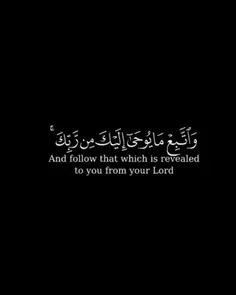 وَٱتَّبِعْ مَا يُوحَىٰٓ إِلَيْكَ مِن رَّبِّكَ ۚ
And follow that which is revealed
to you from your Lord